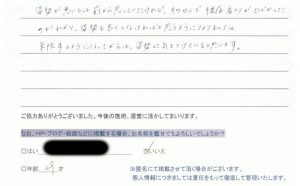 姿勢が悪いとは前から思っていたけれど、そのせいで腰痛、肩こりがひどかった
のがわかり、姿勢を良くしなければと思うようになりました。
来院するようになってからは、姿勢に気をつけていると思います。
ご協力ありがとうございました。今後の施術、運営に活かしてまいります。
なお、HP・ブログ・紙面などに掲載する場合、お名前を載せてもよろしいでしょうか?
□はい いいえ
□年齢 才
※匿名にて掲載させて頂く場合がございます。
個人情報につきましては責任をもって徹底して管理いたします。